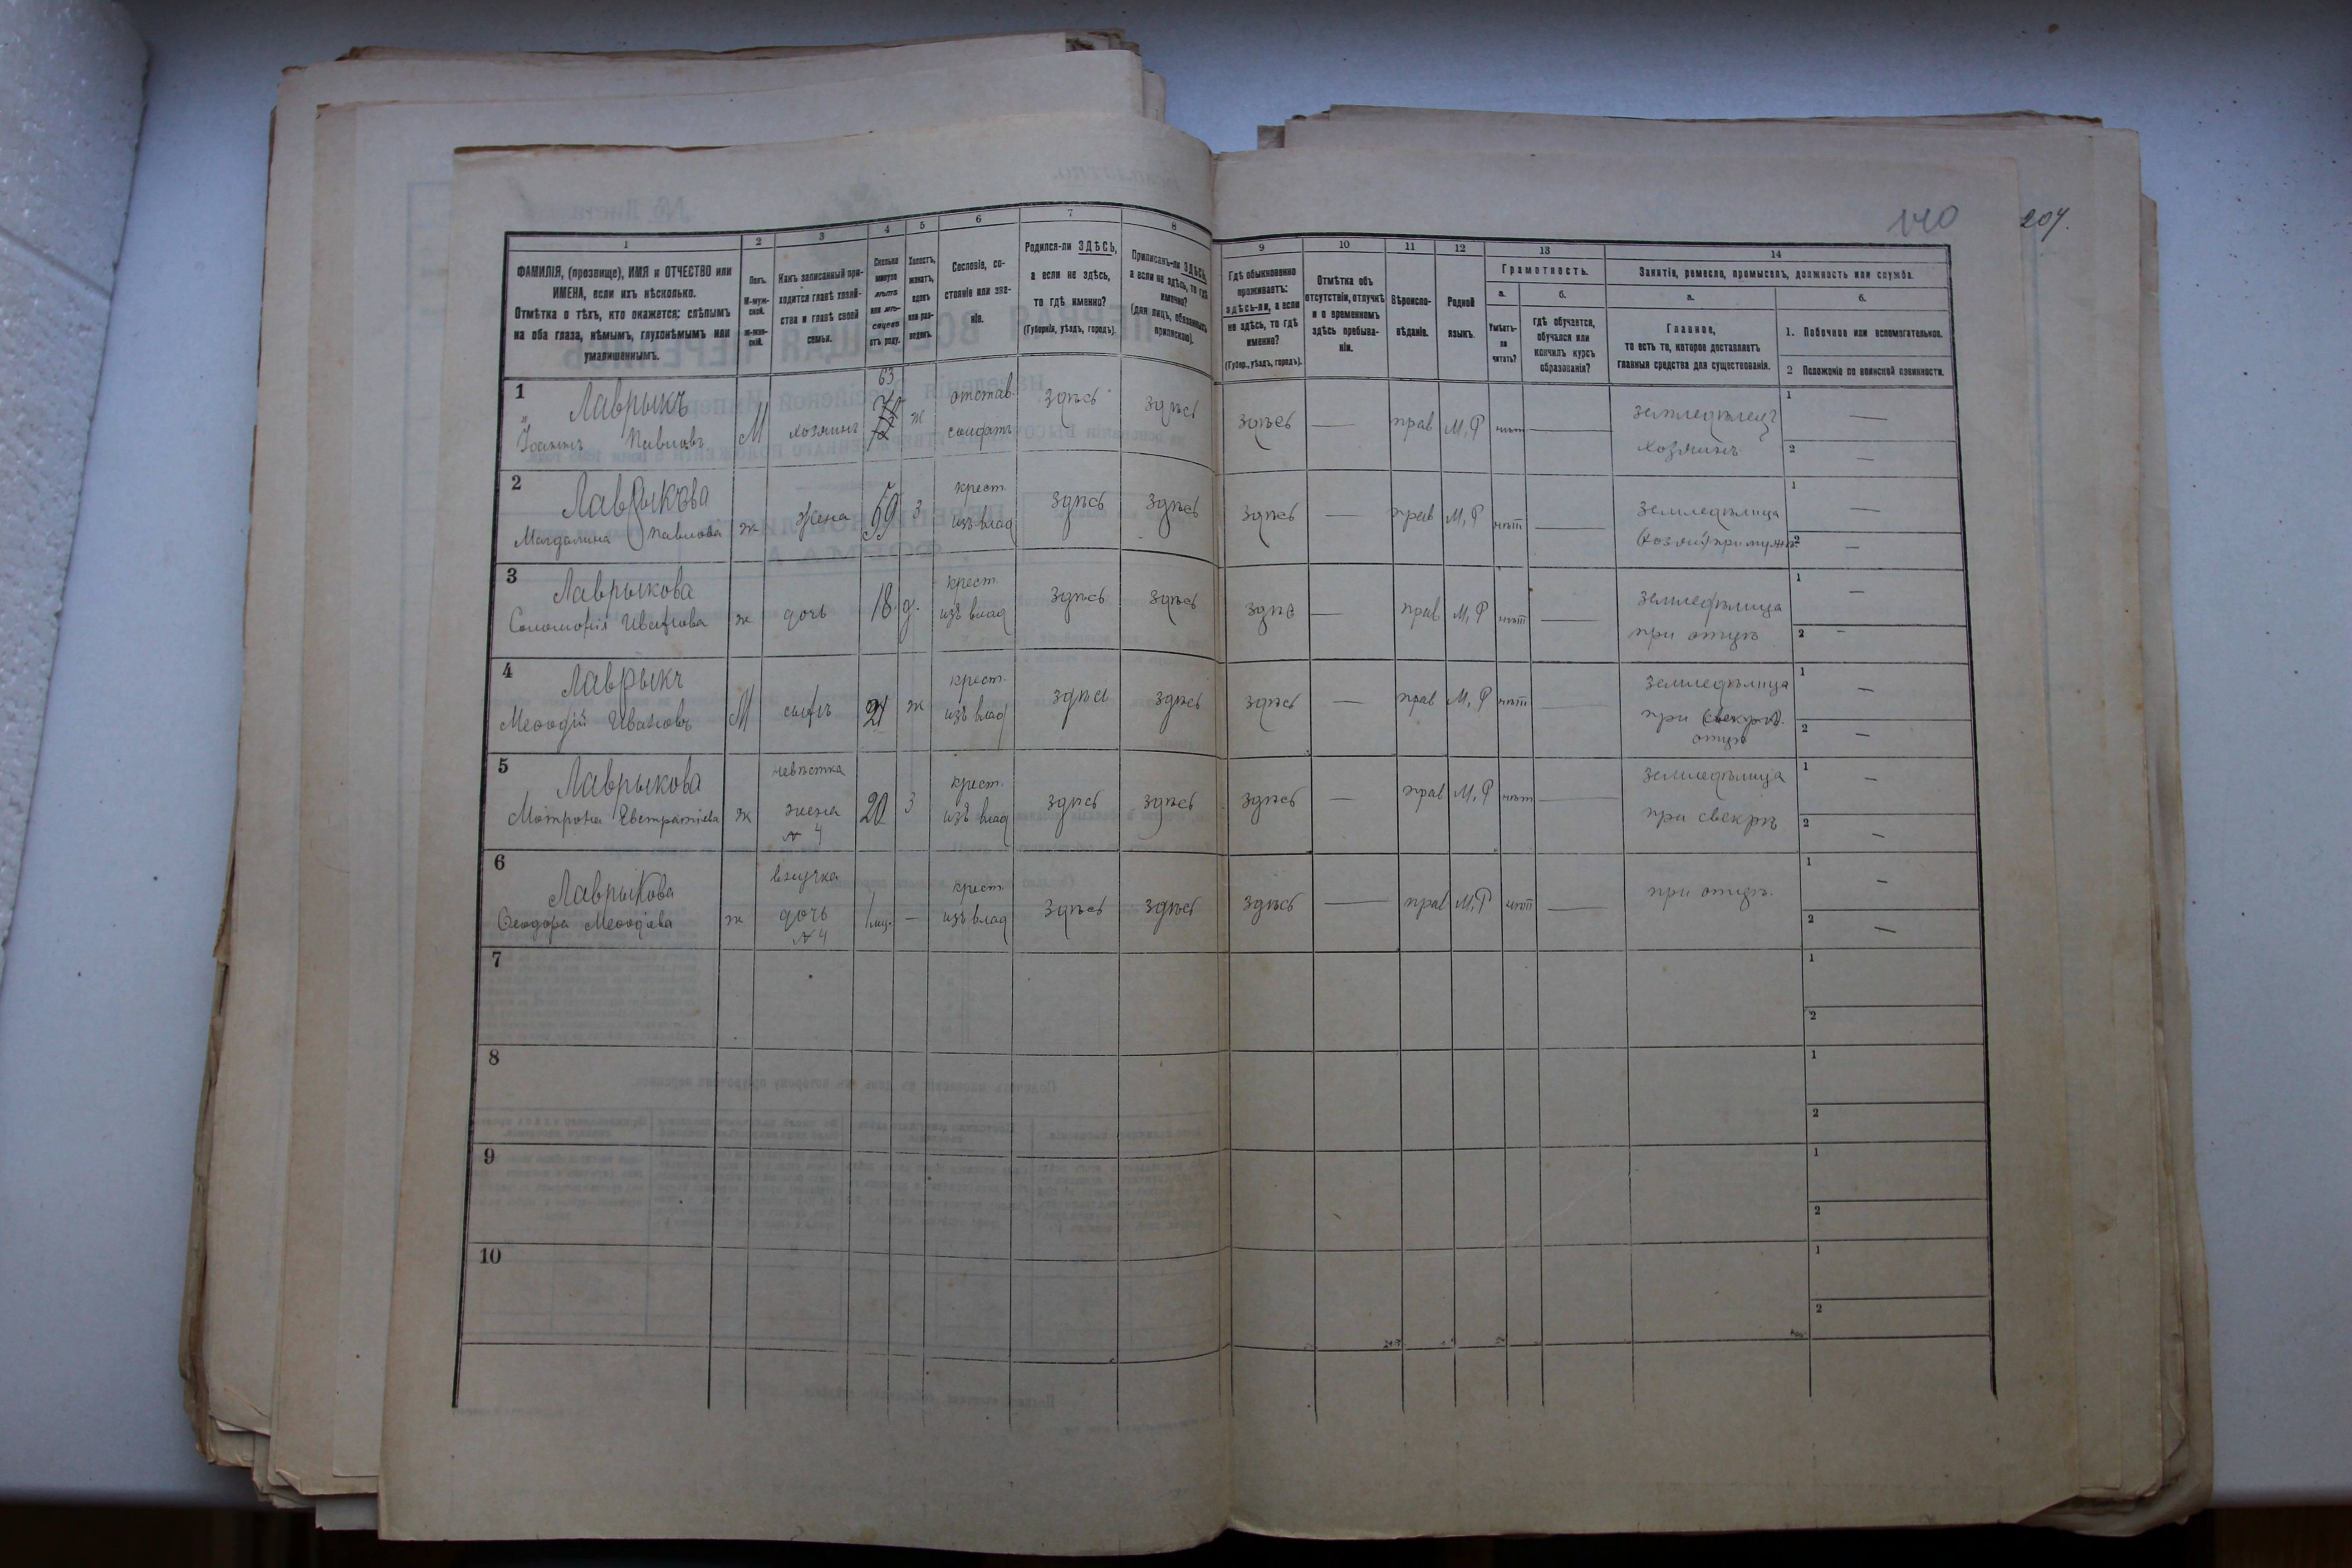 140 207.
1 2 3 4 5 6 7 8 9 10 11 12 13 14
ФАМИЛІЯ, (прозвище), ИМЯ и ОТЧЕСТВО или
ИМЕНА, если ихъ нѣсколько.
Отмѣтка о тѣхъ, кто окажется: слѣпымъ
на оба глаза, нѣмымъ, глухонѣмымъ или
умалишеннымъ.
Полъ.
М-муж-
ской.
Ж-жен-
скій.
Какъ записанный при-
ходится главѣ хозяй-
ства и главѣ своей
семьи.
Сколько
минуло
лѣтъ
или мѣ-
сяцевъ
отъ роду.
Холостъ,
женатъ,
вдовъ
или раз-
веденъ.
Сословіе, со-
стояніе или зва-
ніе.
Родился-ли ЗДѢСЬ,
а если не здѣсь,
то гдѣ именно?
(Губернія, уѣздъ, городъ).
Приписанъ-ли ЗДѢСЬ,
а если не здѣсь, то гдѣ
именно?
(для лицъ, обязанныхъ
припискою).
Гдѣ обыкновенно
проживаетъ:
здѣсь-ли, а если
не здѣсь, то гдѣ
именно?
(Губер., уѣздъ, городъ).
Отмѣтка объ
отсутствіи, отлучкѣ
и о временномъ
здѣсь пребыва-
ніи.
Вѣроиспо-
вѣданіе.
Родной
языкъ.
Грамотность.
а.
Умѣетъ-
ли
читать?
б.
гдѣ обучается,
обучался или
кончилъ курсъ
образованія?
Занятіе, ремесло, промыселъ, должность или служба.
а.
Главное,
то есть то, которое доставляетъ
главныя средства для существованія.
б.
1. Побочное или вспомогательное.
2 Положеніе по воинской повинности.
1 Лаврыкъ 63 отстав. здѣсь здѣсь здѣсь — прав М, Р нѣт — земледѣлецъ 1 —
Іоаннъ Павловъ М хозяинъ ж солдатъ хозяинъ 2 —
2 Лаврыкова крест. здѣсь здѣсь здѣсь — прав М, Р нѣт — земледѣлица 1 —
Магдалина Павлова ж жена 59 З изъ влад (хозяй) при мужѣ 2 —
3 Лаврыкова крест. здѣсь здѣсь здѣс — прав М, Р нѣт — земледѣлица 1 —
Соломонія Иванова ж дочь 18. д. изъ влад при отцѣ 2 —
4 Лаврыкъ крест. здѣсь здѣсь здѣсь — прав М, Р нѣт — земледѣлица 1 —
Меѳодій Ивановъ М сынъ 21 ж изъ влад при (свекрѣ).
отцѣ 2 —
5 Лаврыкова невѣстка крест. здѣсь здѣсь здѣсь — прав М, Р нѣт — земледѣлица 1 —
Мотрона Евстратіева ж жена 20 З изъ влад при свекрѣ 2 —
№ 4
6 Лаврыкова внучка крест. здѣсь здѣсь здѣсь — прав М, Р нѣт — при отцѣ. 1 —
Ѳеодора Меѳодіева ж дочь 1 мц. — изъ влад 2 —
№ 4
7 1
2
8 1
2
9 1
2
10 1
2